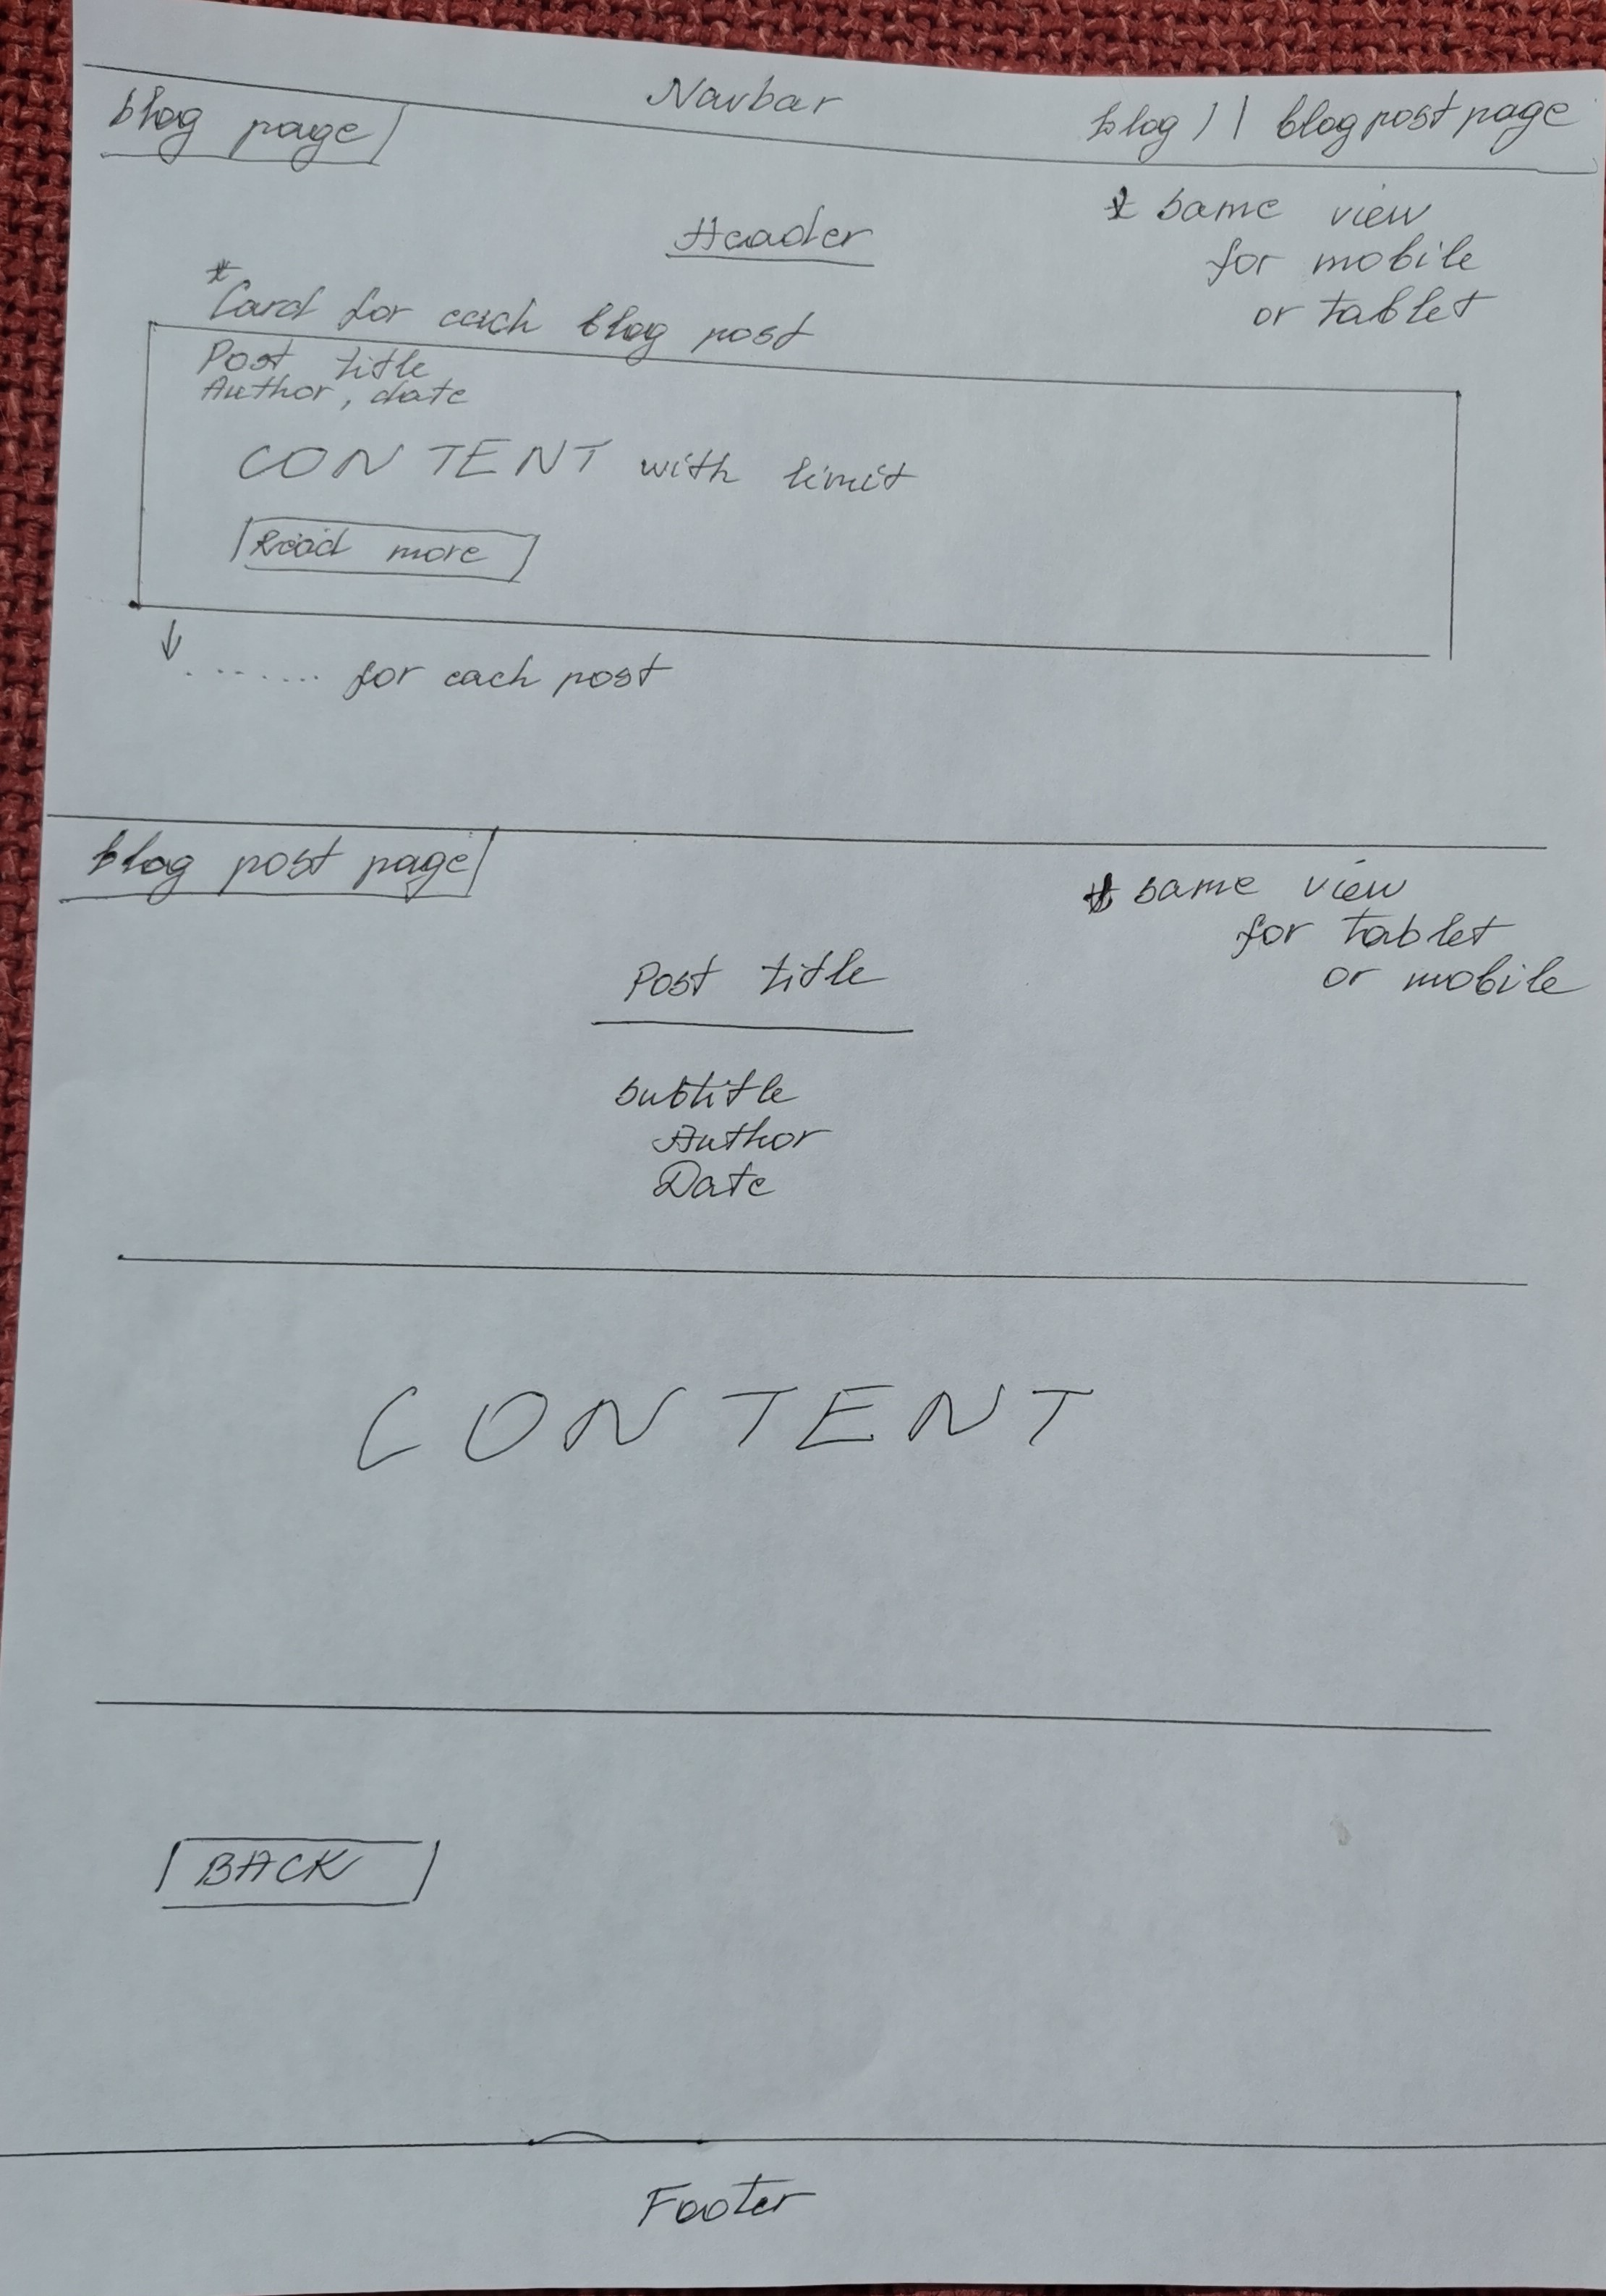 Navbar
blog page
blog || blog post page
Header
* same view
for mobile
or tablet
* Card for each blog post
Post title
Author, date
CONTENT with limit
Read more
↓ ....... for each post
blog post page
* same view
for tablet
or mobile
Post title
subtitle
Author
Date
CONTENT
BACK
Footer